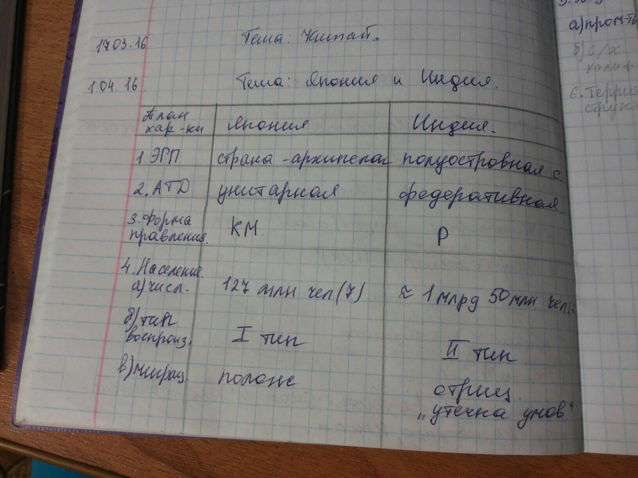 17.03.16 Тема: Китай.
1.04.16 Тема: Япония и Индия.
План
хар-ки Япония Индия.
1. ЭГП страна-архипелаг полуостровная с.
2. АТД унитарная федеративная
3. Форма
правления. КМ Р
4. Население
а) числ. 127 млн чел (7) ≈ 1 млрд 50 млн чел
б) тип
воспроиз. I тип II тип
в) миграц полож отриц.
„утечка умов“
а) пром-ть
б) с/х